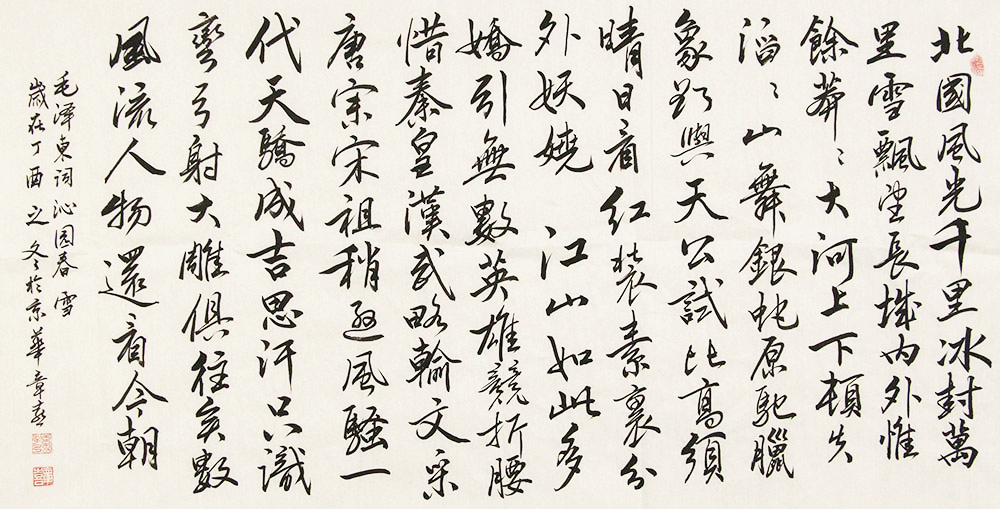 北國風光千里冰封萬
里雪飄望長城内外惟
餘莽〻大河上下頓失
滔〻山舞銀蛇原馳臘
象欲與天公試比高須
晴日看紅裝素裹分
外妖嬈 江山如此多
嬌引無數英雄競折腰
惜秦皇漢武略輸文采
唐宗宋祖稍遜風騷一
代天驕成吉思汗只識
彎弓射大雕俱往矣數
風流人物還看今朝
毛澤東詞沁園春 雪
歲在丁酉之冬於京華 章喜